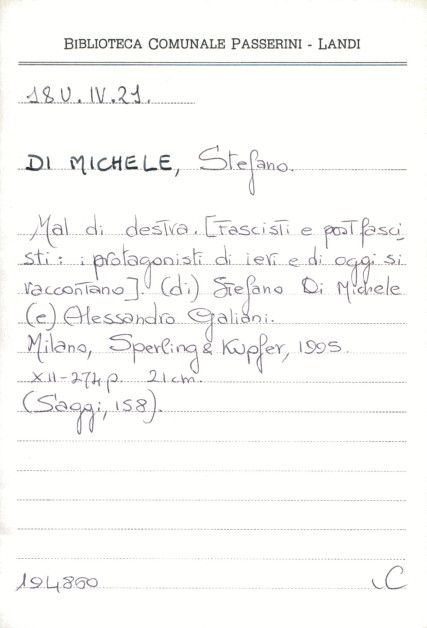 BIBLIOTECA COMUNALE PASSERINI - LANDI
18 U. IV. 21.
DI MICHELE, Stefano.
Mal di destra. [Fascisti e postfasci
sti: i protagonisti di ieri e di oggi si
raccontano]. (di) Stefano Di Michele
(e) Alessandro Galiani.
Milano, Sperling & Kupfer, 1995.
XII-274 p. 21 cm.
(Saggi, 158).
194860
C